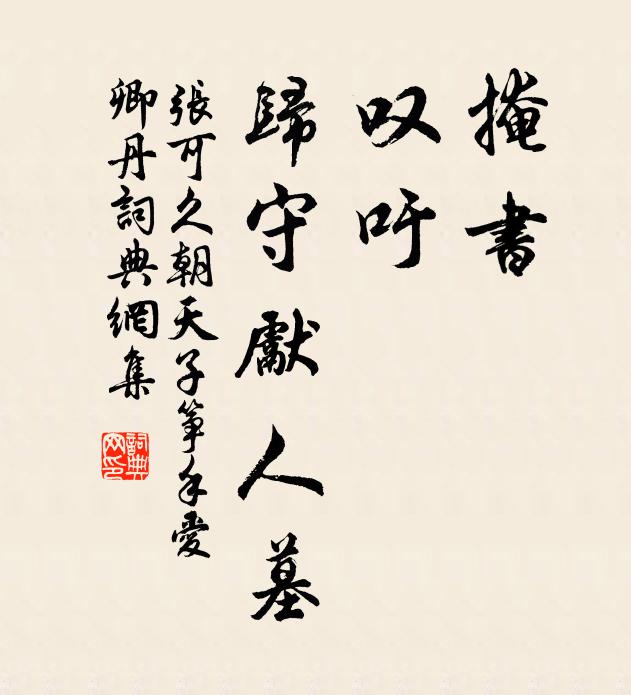 掩書
叹吁
歸守獻人墓
張可久朝天子箏手愛
卿丹詞典網集
詞典
网印